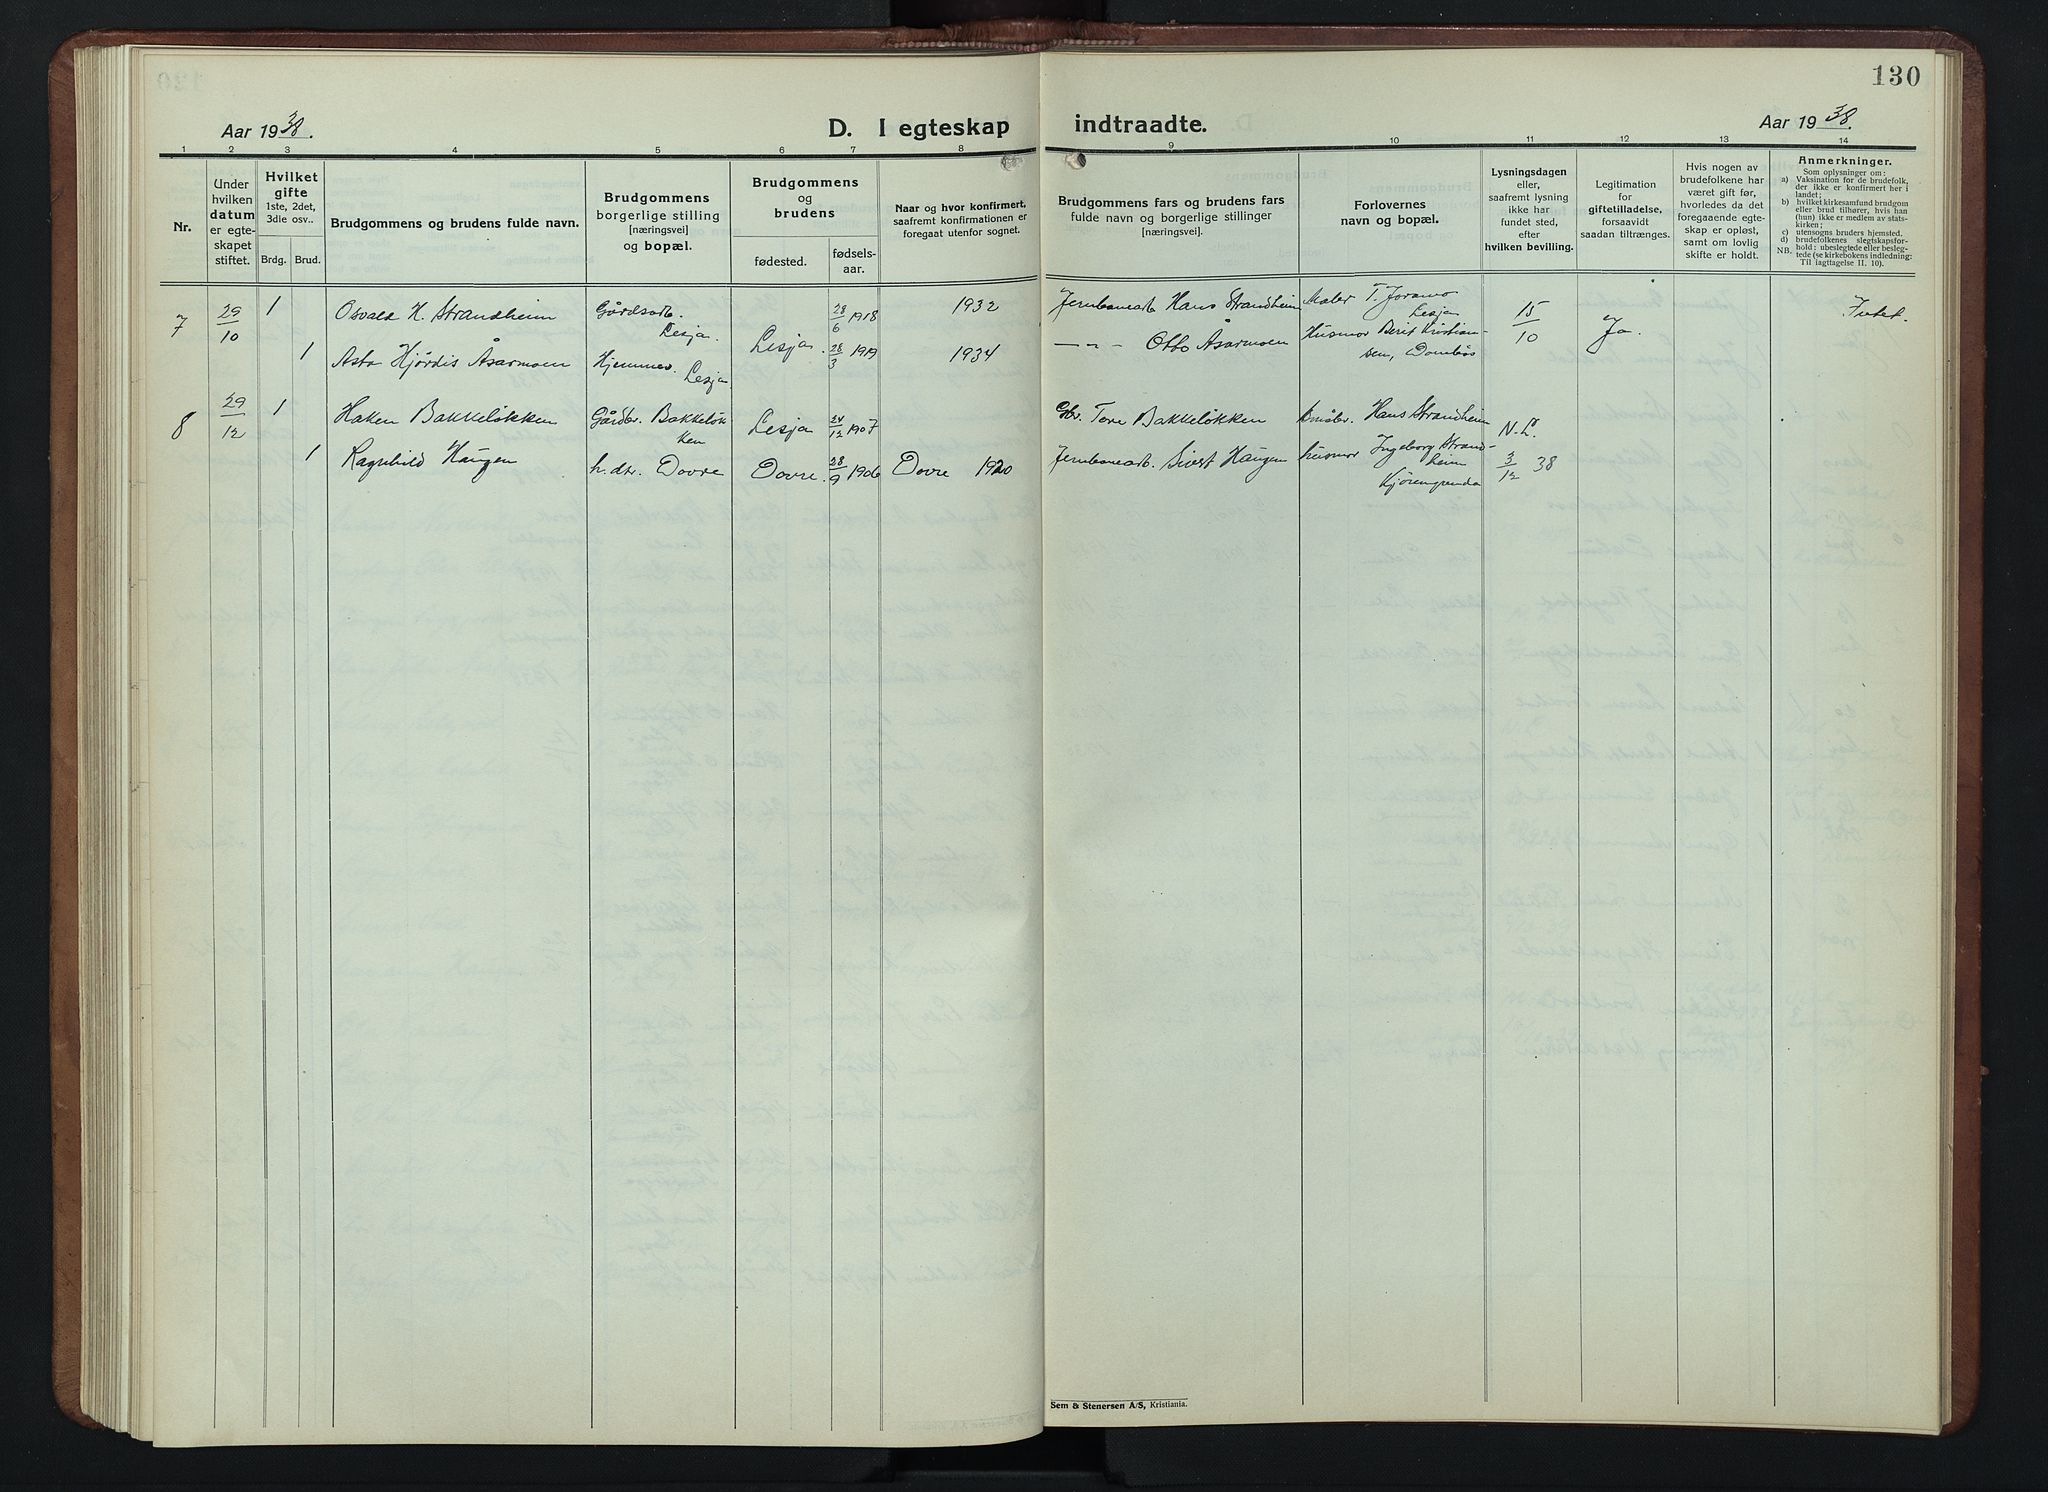 130
Aar 1938.
D. I egteskap
indtraadte.
Aar 1938.
1 2 3 4 5 6 7 8 9 10 11 12 13 14
Nr.
Under
hvilken
datum
er egte-
skapet
stiftet.
Hvilket
gifte
1ste, 2det,
3dle osv..
Brdg. Brud.
Brudgommens og brudens fulde navn.
Brudgommens
borgerlige stilling
[næringsvei]
og bopæl.
Brudgommens
og
brudens
fødested.
fødsels-
aar.
Naar og hvor konfirmert,
saafremt konfirmationen er
foregaat utenfor sognet.
Brudgommens fars og brudens fars
fulde navn og borgerlige stillinger
[næringsvei].
Forlovernes
navn og bopæl.
Lysningsdagen
eller,
saafremt lysning
ikke har
fundet sted,
efter
hvilken bevilling.
Legitimation
for
giftetilladelse,
forsaavidt
saadan tiltrænges.
Hvis nogen av
brudefolkene har
været gift før,
hvorledes da det
foregaaende egte-
skap er opløst,
samt om lovlig
skifte er holdt.
Anmerkninger.
Som oplysninger om:
a) Vaksination for de brudefolk,
der ikke er konfirmert her i
landet;
b) hvilket kirkesamfund brudgom
eller brud tilhører, hvis han
(hun) ikke er medlem av stats-
kirken;
c) utensogns bruders hjemsted.
d) brudefolkenes slegtskapsfor-
hold: ubeslegtede eller besleg-
tede (se kirkebokens indledning:
NB. Til iagttagelse II. 10).
7 29/10 1 Osvald H. Strandheim Gårdsarb. Lesja. Lesja. 28/6 1918 1932 Jernbanearb. Hans Strandheim Maler T. Joramo Lesja 15/10 Ja. Intet.
1 Asta Hjördis Åsarmoen Hjemmev. Lesja 28/3 1919 1934 — " — Otto Åsarmoen Husmor Berit Kristian-
sen, Dombås
8 29/12 1 Haken Bakkeløkken Gårdbr. Bakkeløk-
ken Lesja 24/12 1907 Gbr. Tore Bakkeløkken Hans Strandheim N.L.
1 Ragnhild Haugen h. dtr. Dovre Dovre. 28/9 1906 Dovre 1920 Jernbanearb. Sivert Haugen husmor Ingeborg Strand-
heim 3/12 38
Kjøremgrenda
Sem & Stenersen A/S, Kristiania.